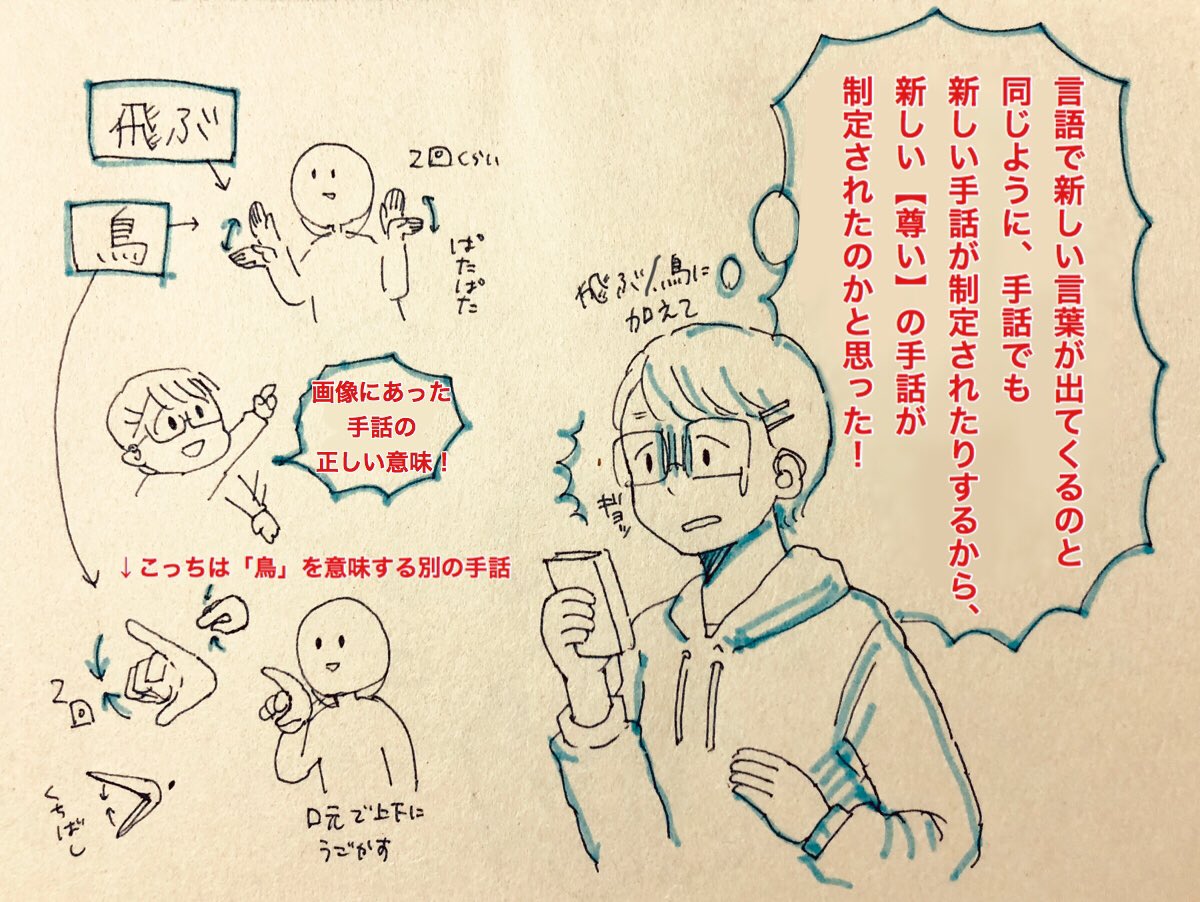 言語で新しい言葉が出てくるのと
同じように、手話でも
新しい手話が制定されたりするから、
新しい【尊い】の手話が
制定されたのかと思った！
飛ぶ/鳥に
加えて
ギョッ
飛ぶ
2回くらい
鳥
ぱたぱた
画像にあった
手話の
正しい意味！
↓こっちは「鳥」を意味する別の手話
2回
くちばし
口元で上下に
うごかす